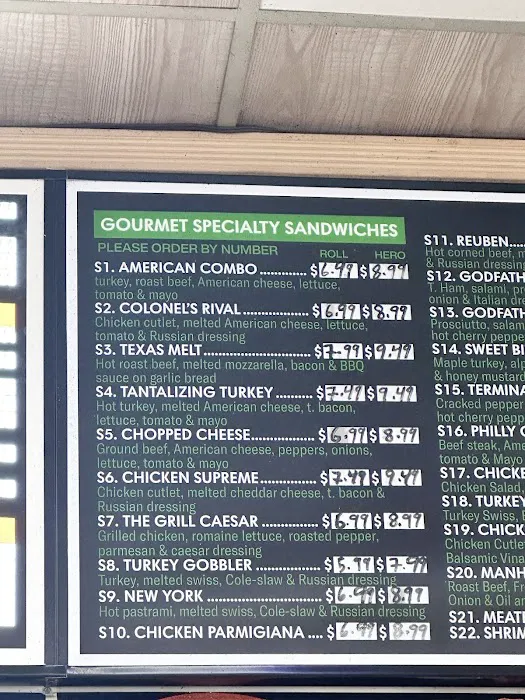 GOURMET SPECIALTY SANDWICHES
PLEASE ORDER BY NUMBER ROLL HERO
S1. AMERICAN COMBO ............. $6.49 $8.99
turkey, roast beef, American cheese, lettuce,
tomato & mayo
S2. COLONEL'S RIVAL ................. $6.99 $8.99
Chicken cutlet, melted American cheese, lettuce,
tomato & Russian dressing
S3. TEXAS MELT ............................ $7.99 $9.49
Hot roast beef, melted mozzarella, bacon & BBQ
sauce on garlic bread
S4. TANTALIZING TURKEY .......... $7.49 $9.49
Hot turkey, melted American cheese, t. bacon,
lettuce, tomato & mayo
S5. CHOPPED CHEESE ................ $6.99 $8.99
Ground beef, American cheese, peppers, onions,
lettuce, tomato & mayo
S6. CHICKEN SUPREME .............. $7.49 $9.49
Chicken cutlet, melted cheddar cheese, t. bacon &
Russian dressing
S7. THE GRILL CAESAR ............... $6.99 $8.99
Grilled chicken, romaine lettuce, roasted pepper,
parmesan & caesar dressing
S8. TURKEY GOBBLER ................ $5.99 $7.49
Turkey, melted swiss, Cole-slaw & Russian dressing
S9. NEW YORK ........................... $6.49 $8.99
Hot pastrami, melted swiss, Cole-slaw & Russian dressing
S10. CHICKEN PARMIGIANA .... $6.99 $8.99
S11. REUBEN....
Hot corned beef, m
& Russian dressin
S12. GODFATH
T. Ham, salami, pr
onion & Italian dr
S13. GODFATH
Prosciutto, salam
hot cherry pepp
S14. SWEET BI
Maple turkey, alp
& honey mustard
S15. TERMINA
Cracked pepper
hot cherry pepp
S16. PHILLY C
Beef steak, Ame
tomato & Mayo
S17. CHICKE
Chicken Salad,
S18. TURKEY
Turkey Swiss, B
S19. CHICK
Chicken Cutle
Balsamic Vina
S20. MANH
Roast Beef, Fr
Onion & Oil an
S21. MEATL
S22. SHRIM